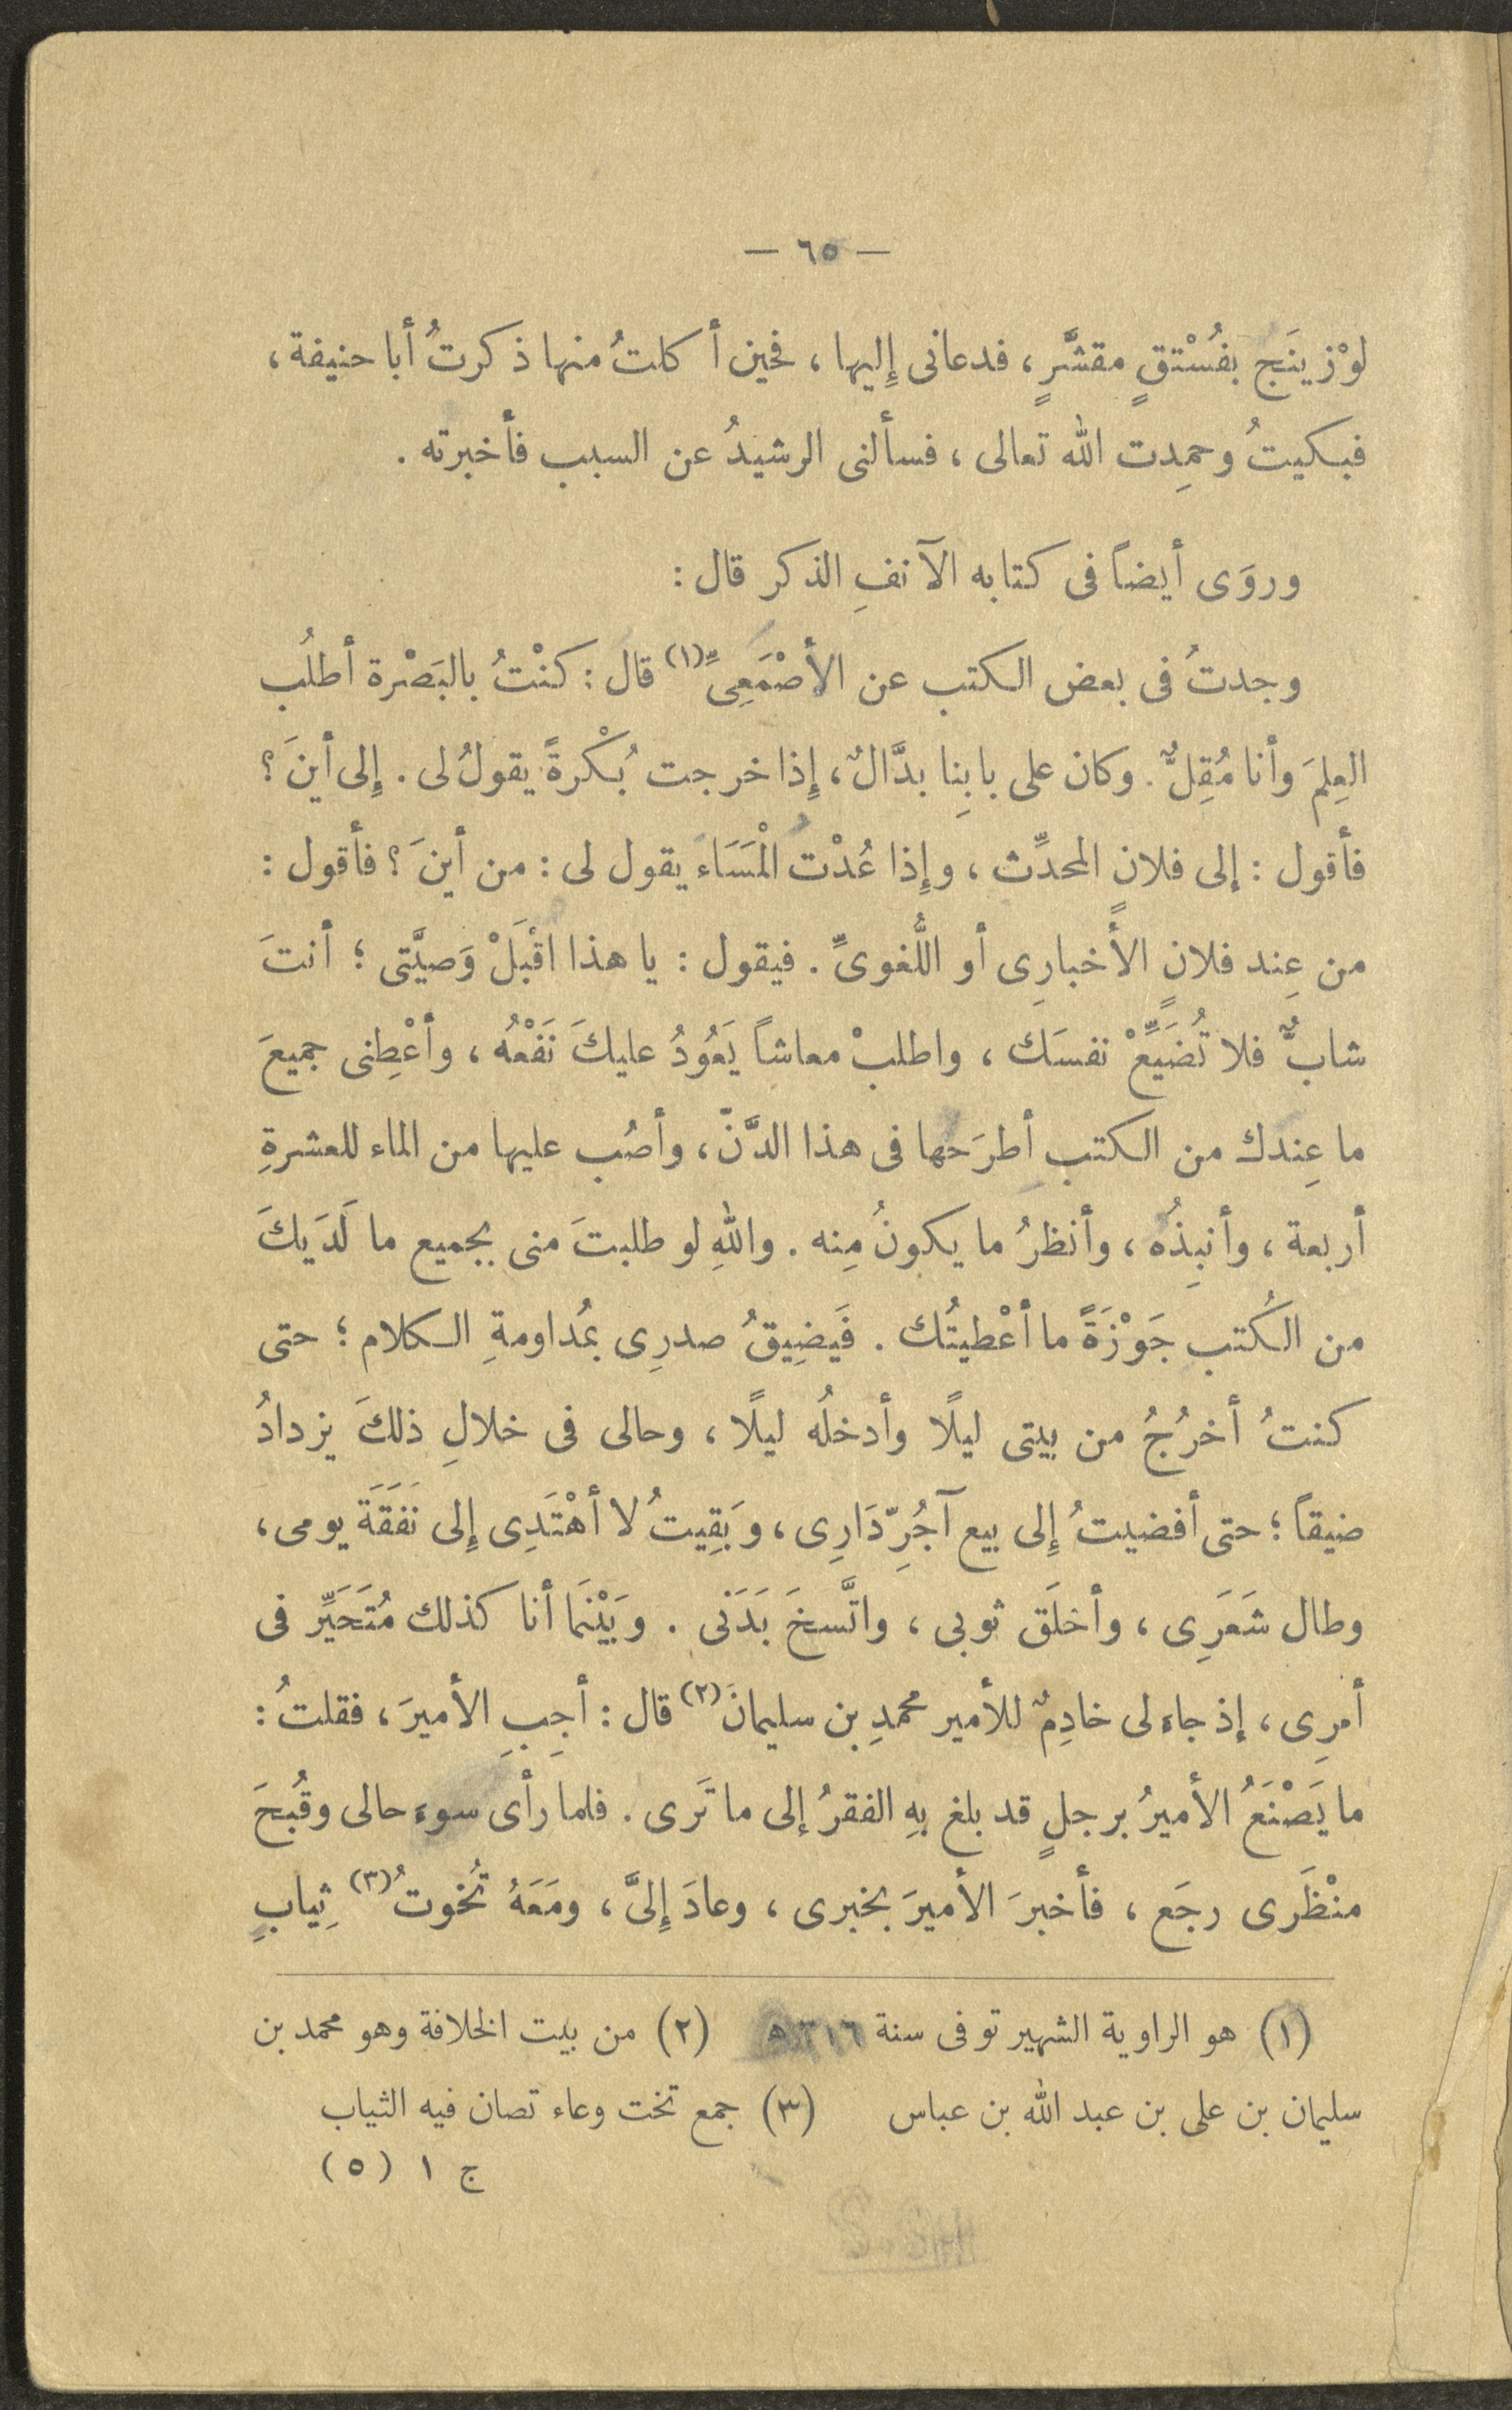 — ٦٥ —
لوْزينَج بفُسْتقٍ مقشَّرٍ ، فدعانى إِليها ، فحين أكلتُ منها ذكرتُ أبا حنيفة ،
فبكيتُ وحمِدت الله تعالى ، فسألنى الرشيدُ عن السبب فأخبرته .
وروَى أيضاً فى كتابه الآنفِ الذكر قال :
وجدتُ فى بعض الكتب عن الأصْمَعِىِّ (١) قال : كنْتُ بالبَصْرة أطلُب
العِلمَ وأنا مُقِلٌّ . وكان على بابِنا بدَّالٌ ، إِذا خرجت بُكْرةً يقولُ لى . إِلى أينَ ؟
فأقول : إلى فلانٍ المحدِّث ، وإِذا عُدْتُ الْمَسَاءَ يقول لى : من أينَ ؟ فأقول :
من عِند فلانٍ الأخبارِى أو اللُّغوىِّ . فيقول : يا هذا اقْبَلْ وَصيَّتى ؛ أنتَ
شابٌّ فلا تُضَيِّعْ نفسَك ، واطلبْ معاشاً يَعُودُ عليكَ نَفْعُه ، وأعْطِنى جميعَ
ما عِندك من الكتبِ أطرَحها فى هذا الدَّنّ ، وأصُب عليها من الماء للعشرةِ
أربعة ، وأنبِذُه ، وأنظرُ ما يكونُ مِنه . واللهِ لو طلبتَ منى بجميع ما لَدَيكَ
من الكُتب جَوْزَةً ما أعْطيتُك . فَيَضِيقُ صدرِى بمُداومةِ الكلام ؛ حتى
كنتُ أخرُجُ من بيتى ليلًا وأدخلُه ليلًا ، وحالى فى خلالِ ذلكَ يزدادُ
ضيقاً ؛ حتى أفضيتُ إِلى بيع آجُرِّ دَارِى ، وبَقِيتُ لا أهْتَدِى إِلى نَفَقَةَ يومى ،
وطال شَعَرِى ، وأخلَق ثوبى ، واتَّسخَ بَدَنى . وبَيْنَما أنا كذلك مُتَحَيِّر فى
أمرِى ، إذ جاء لى خادِمٌ للأمير محمدِ بن سليمانَ (٢) قال : أجِبِ الأميرَ ، فقلتُ :
ما يَصْنَعُ الأميرُ برجلٍ قد بلغ بهِ الفقرُ إلى ما تَرى . فلما رأى سوء حالى وقُبحَ
منْظَرى رجَع ، فأخبرَ الأميرَ بخبرى ، وعادَ إِلىَّ ، ومَعَهُ تُخوتُ (٣) ثِيابٍ
(١) هو الراوية الشهير توفى سنة ٢١٦ ه (٢) من بيت الخلافة وهو محمد بن
سليمان بن على بن عبد الله بن عباس (٣) جمع تخت وعاء تصان فيه الثياب
ج ١ (٥)